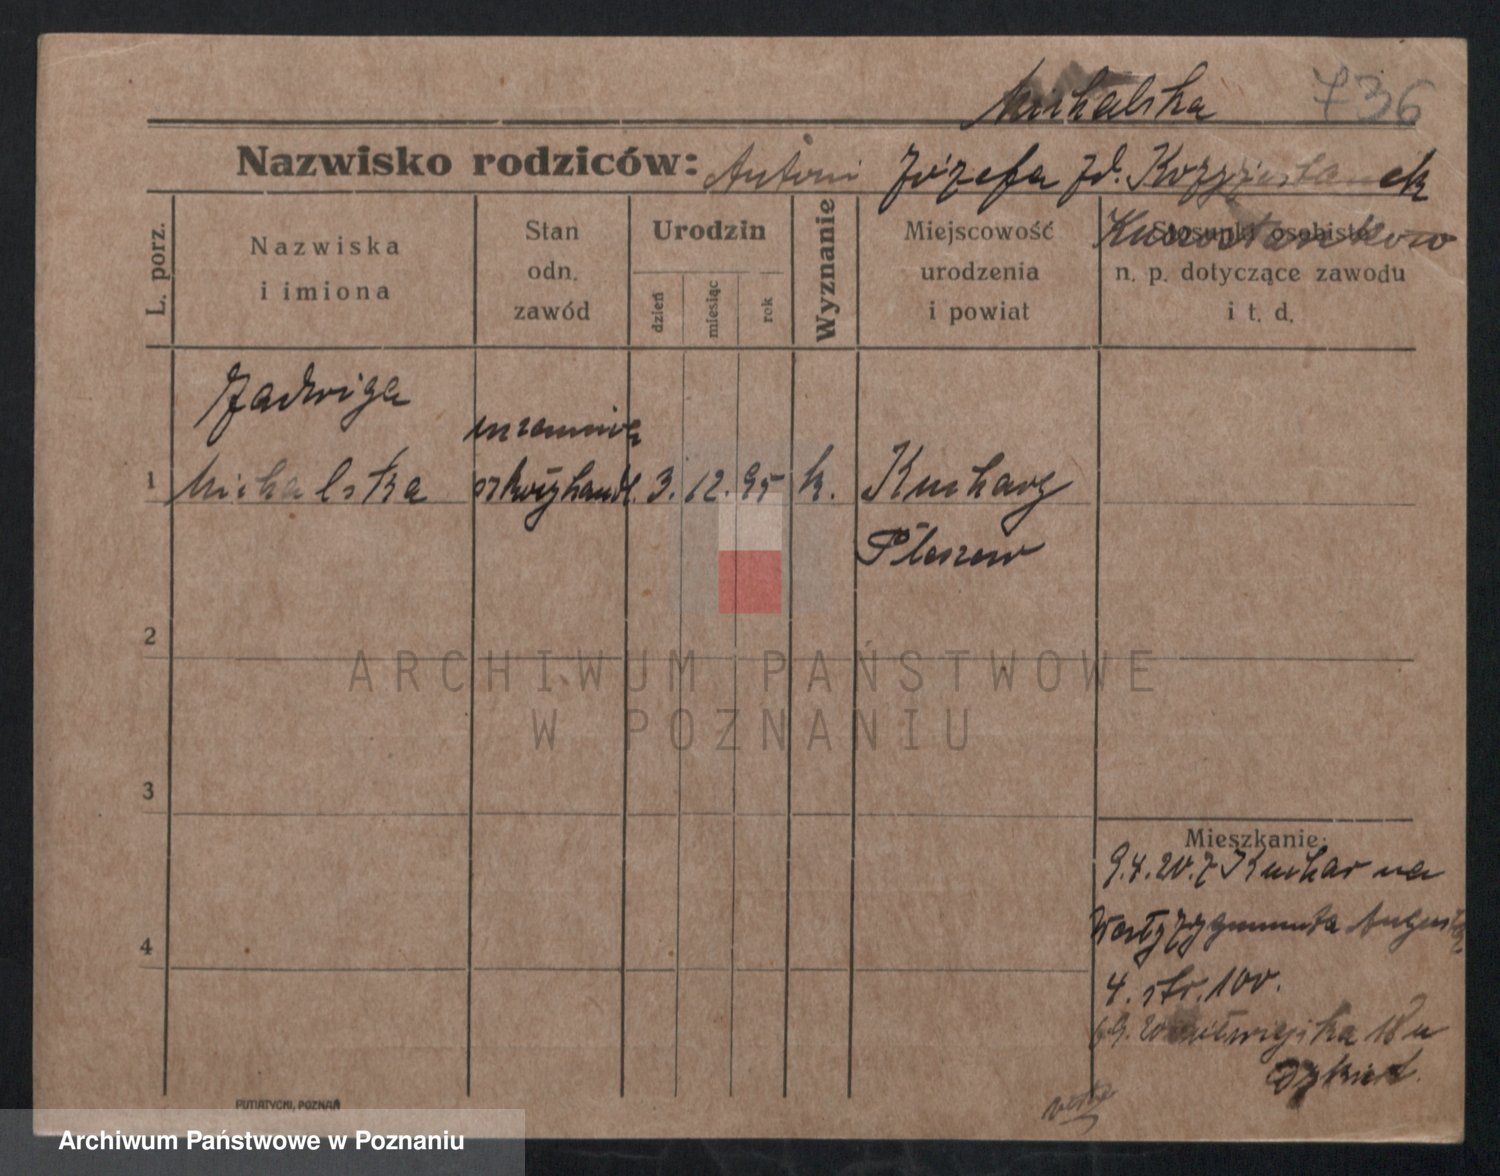 Michalska 736
Nazwisko rodziców: Antoni Józefa zd.
L. porz.
Nazwiska
i imiona
Stan
odn.
zawód
Urodzin
dzień
miesiąc
rok
Wyznanie
Miejscowość
urodzenia
i powiat
Stosunki osobiste
n. p. dotyczące zawodu
i t. d.
Jadwiga
1 Michalska 3. 12. 95 k. Kuchary
Pleszew
2
3
4
ARCHIWUM PAŃSTWOWE
W POZNANIU
Mieszkanie:
9.4.20. z Kuchar na
Zygmunta Augusta
4. str. 100.
18 u
PUTIATYCKI, POZNAŃ
Archiwum Państwowe w Poznaniu